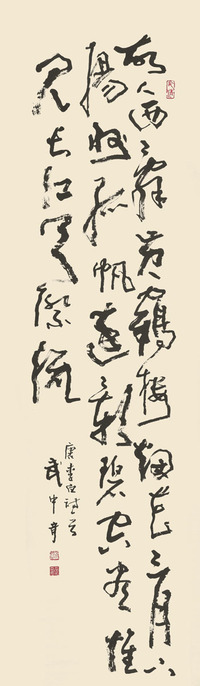 故人西辭黄鶴樓烟花三月下
揚州孤帆遠影碧空盡惟
見長江天際流
唐李白詩一首
武中奇